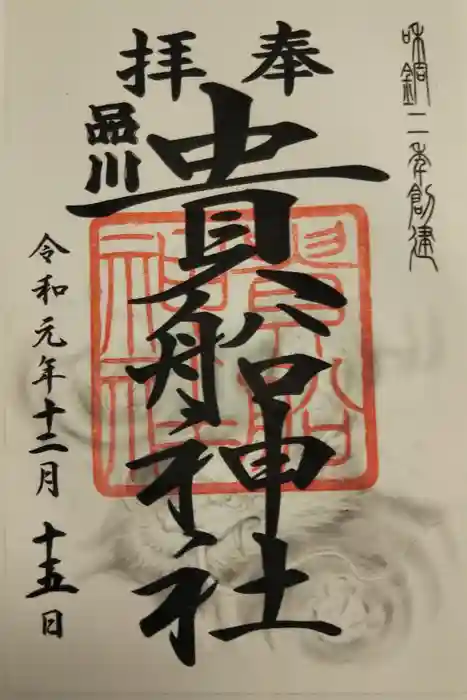 和銅二年創建
奉拝
品川
貴船神社
貴船神社
令和元年十二月十五日